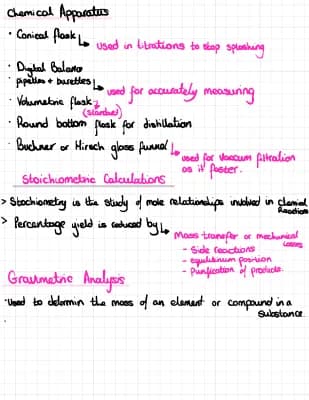 Chemical Apparatus
· Conical flask ↳ used in titrations to stop splashing
· Digital Balance
· pipettes + burettes ↳ used for accurately measuring
· Volumetric flask
(standard)
· Round bottom flask for distillation
· Buchner or Hirsch glass funnel ↳ used for vaccum filtration
as it faster.
Stoichiometric Calculations
> Stochiometry is the study of mole relationships involved in chemical
Reactions
> Percentage yield is reduced by ↳ Mass transfer or mechanical
losses
- Side reactions
- equilibrium position
- Purification of products.
Gravimetric Analysis
· Used to determin the mass of an element or compound in a
substance.